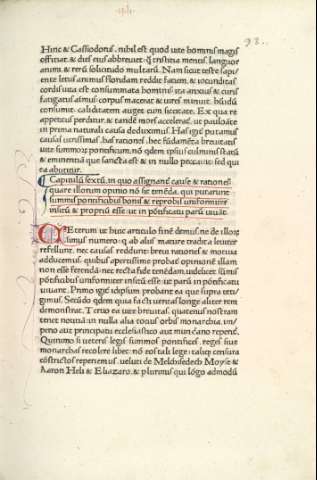 Hinc & Cassiodorus. nihil est quod uite hominis magis
officiat. & dies eius abbreuiet. q̃ tristitia mentis. languor
animi. & rerũ solicitudo multarũ. Nam sicut teste sapi/
ente letus animus floridam reddit etatem. & iocunditas
cordis uita est consummata hominis: ita anxius & curis
fatigatus aĩmus. corpus macerat & uires minuit. hũidũ
consumit. caliditatem auget. cum siccitate. Ex qua re
appetitus perdit̃ur. & tandẽ mors acceleras. ut paulo ãte
in prima naturali causa deduximus. Has igit̃ putamus
causas uerissimas. has rationes. hec fũdamẽta breuitatis
uite summoꝝ pontificum. nõ q̃dem ipsius culminis status
& eminentiã que sancta est & in nullo peccauit: sed qui
ea abutitur.
Capitulũ sextũ. in quo assignant̃ cause & rationes
quare illorum opinio nõ sit tenẽda. qui putarunt
summis pontificibus bonis & reprobis uniformiter
insitũ & propriũ esse. ut in põtificatu parũ uiuãt.
Ceterum ut huic articulo finẽ demus. ne de illoꝝ
simus numero. q̃ ab aliis mature tradita leuiter
refellunt. nec causas reddunt: breui rationes & motiua
adducemus. quibus apertissime probat̃ opinionẽ illam
non esse ferendã. nec recta fide tenẽdam. uidelicet sũmis
põtificibus uniformiter insitũ esse. ut parũ in põtificatu
uiuant. Primo igit̃ idipsum probant ea que supra teti/
gimus. Secũdo q̃dem quia facti ueritas longe aliter rem
demonstrat. Tercio ea uite breuitas. quatenus nostram
tenet nouitã: in nulla alia totius orbis monarchia. im/
perio aut principatu ecclesiastico aut mundano reperit̃.
Quinimo si ueteris legis summos pontifices. reges siue
monarchas recolere libet: nõ eos tali lege. talis ue censura
cõstrictos reperiemus. ueluti de Melchisedech Moyse &
Aaron Heli & Eliazaro. & plurimis qui lõgo admodũ